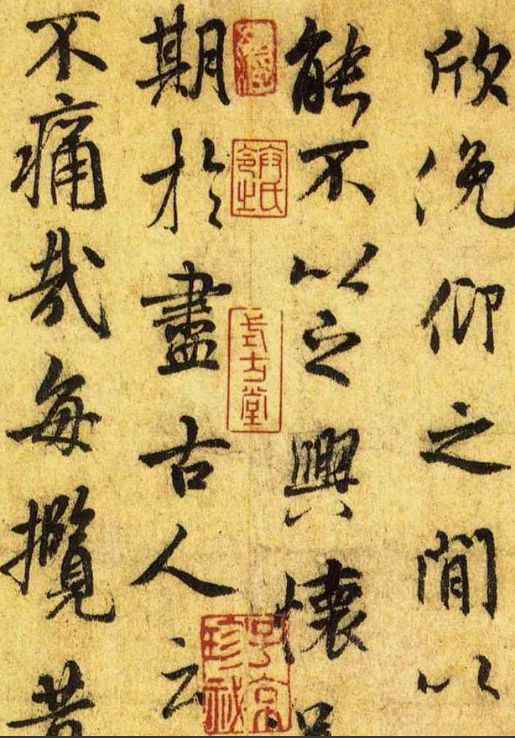 欣俛仰之閒以
能不以之興懷
期於盡古人云
不痛哉每攬昔
式古堂
子京
珍祕